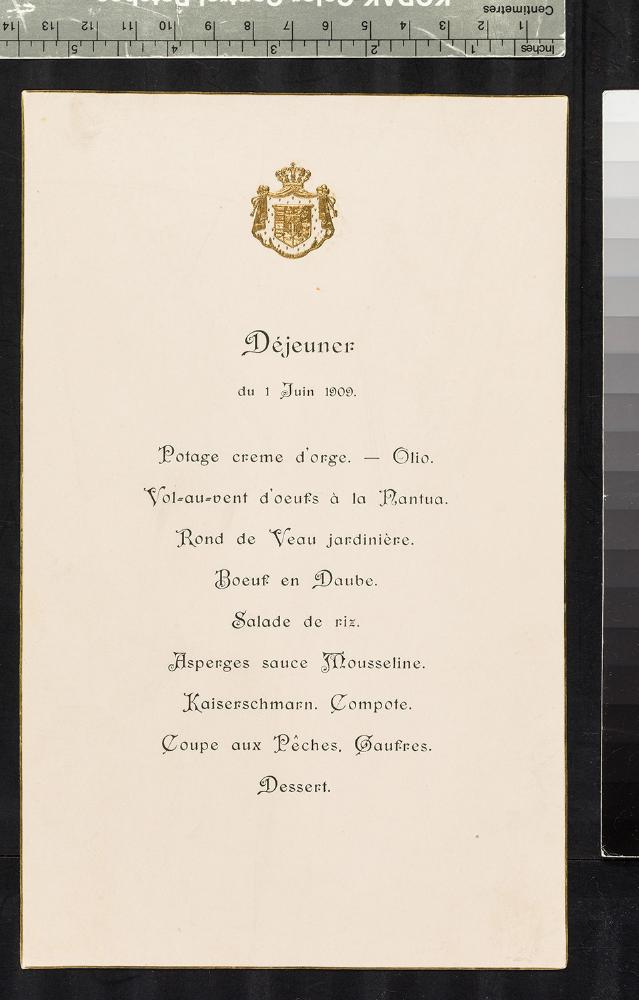 KODAK Color Control Patches
Centimetres
1 2 3 4 5 6 7 8 9 10 11 12 13 14
Inches 1 2 3 4 5
Déjeuner
du 1 Juin 1909.
Potage creme d'orge. — Olio.
Vol-au-vent d'oeufs à la Nantua.
Rond de Veau jardinière.
Boeuf en Daube.
Salade de riz.
Asperges sauce Mousseline.
Kaiserschmarn. Compote.
Coupe aux Pêches, Gaufres.
Dessert.